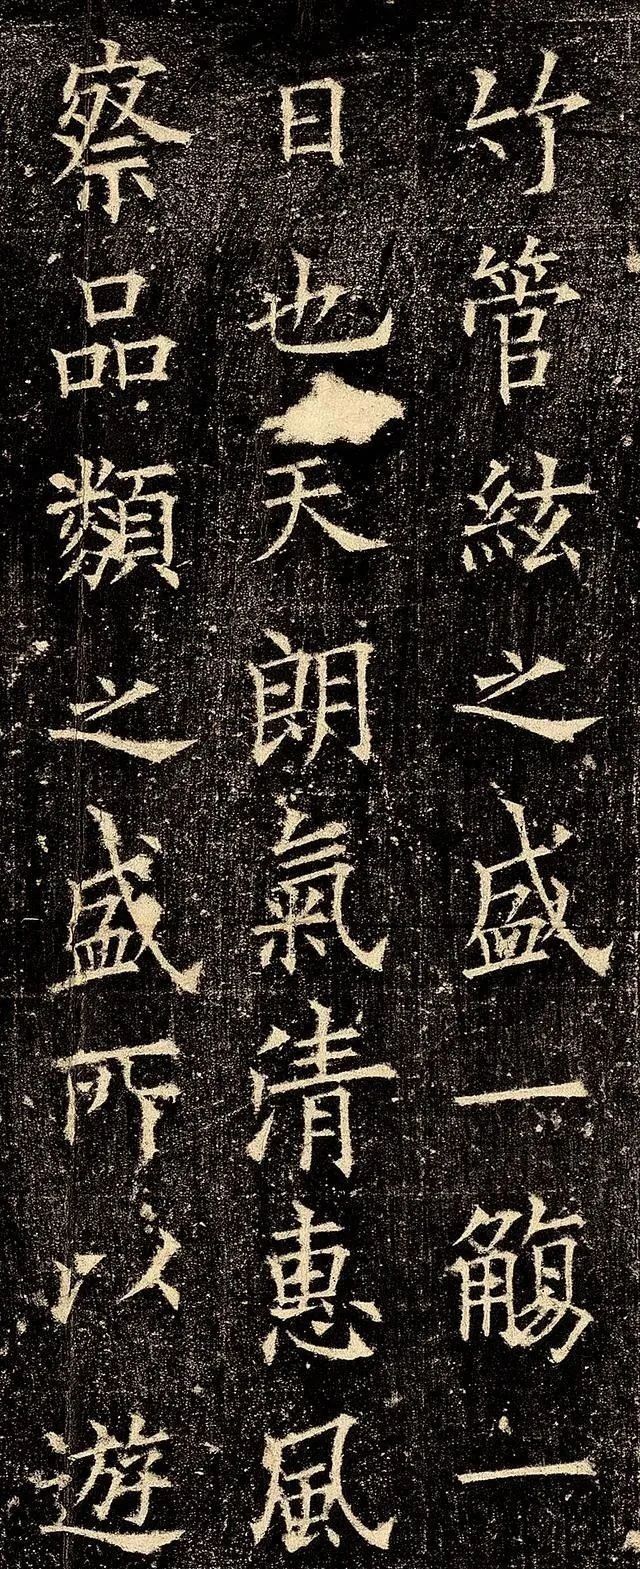 竹管絃之盛一觴一
日也天朗氣清惠風
察品類之盛所以遊